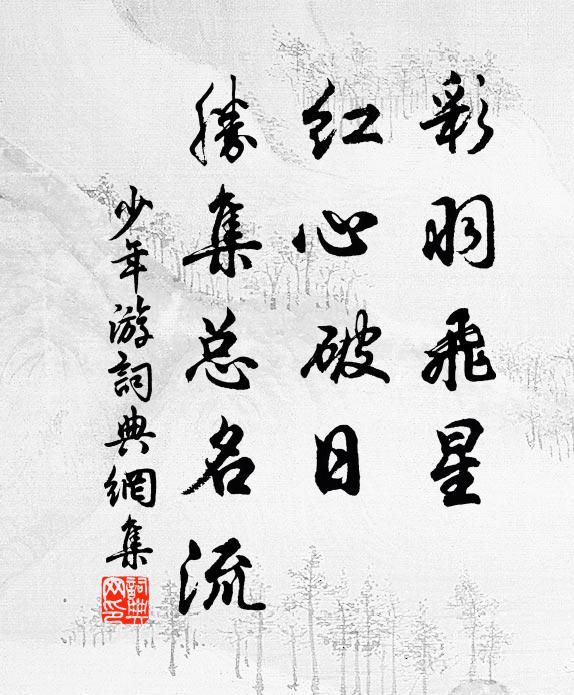 彩羽飛星
红心破日
勝集总名流
少年游詞典網集
詞典網印